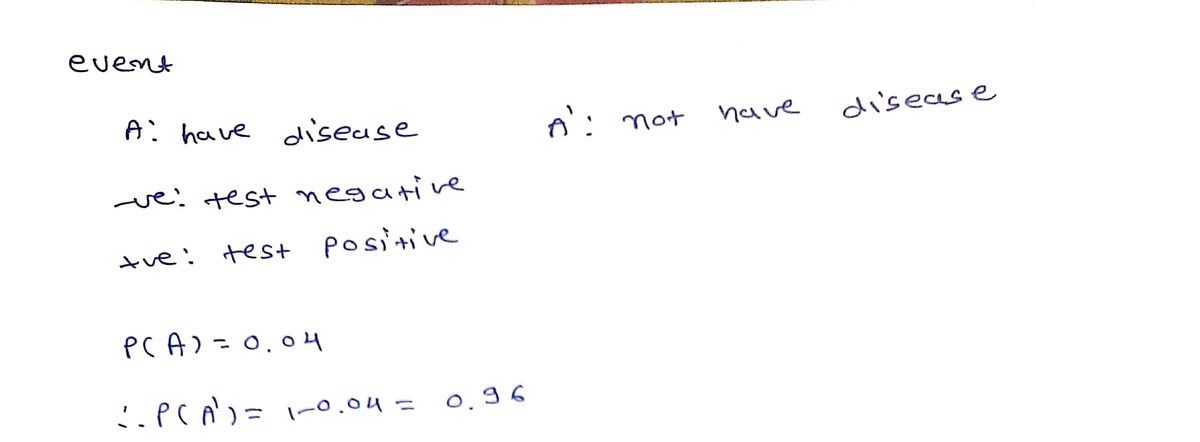 event
A: have disease A': not have disease
-ve: test negative
+ve: test positive
P(A) = 0.04
∴ P(A') = 1-0.04 = 0.96